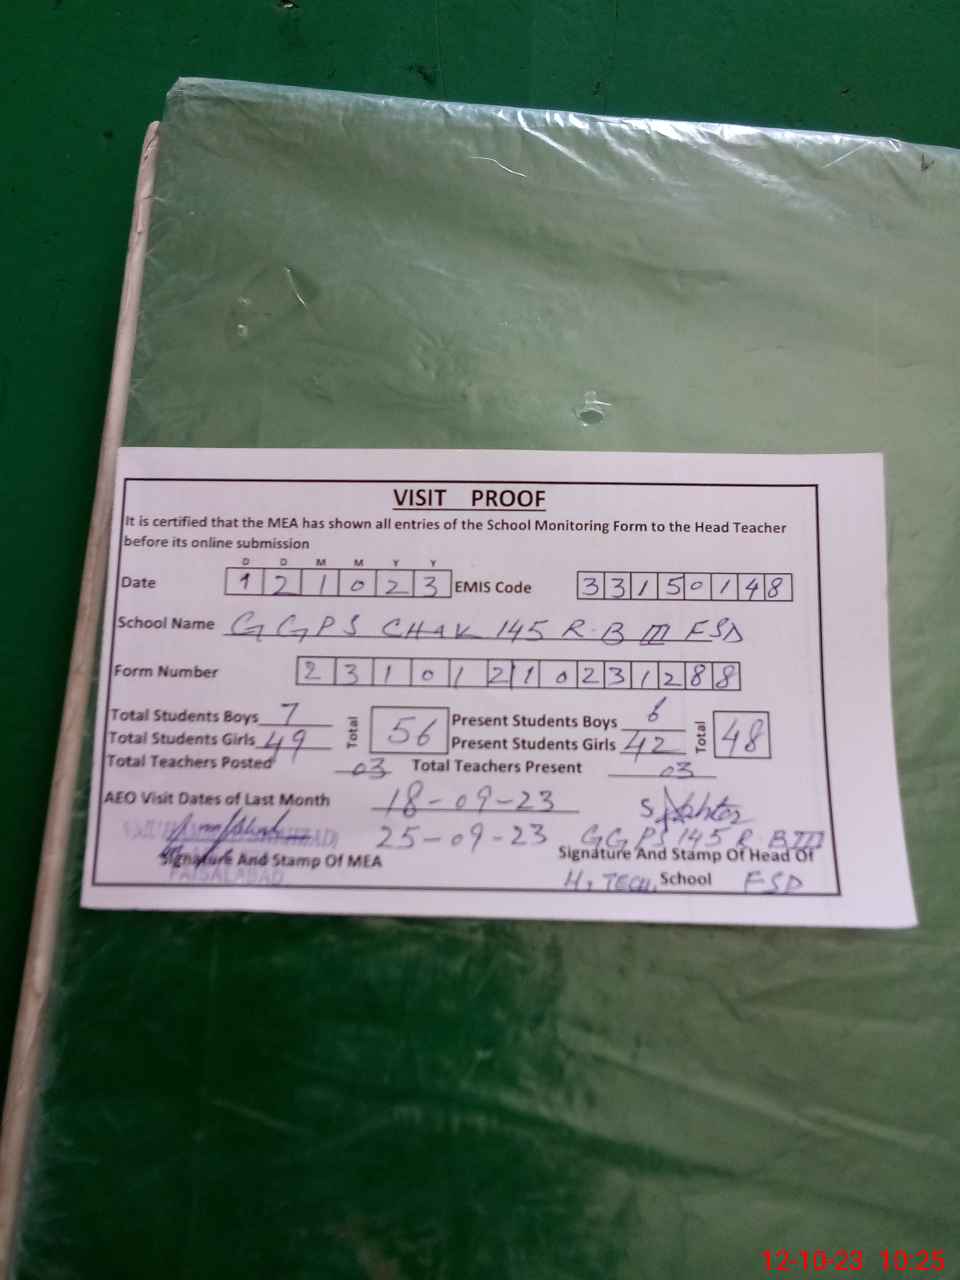 VISIT PROOF
It is certified that the MEA has shown all entries of the School Monitoring Form to the Head Teacher
before its online submission
D D M M Y Y
Date 1 2 1 0 2 3 EMIS Code 3 3 1 5 0 1 4 8
School Name G G P S CHAK 145 R-B III FSD
Form Number 2 3 1 0 1 2 1 0 2 3 1 2 8 8
Total Students Boys 7 Total 56 Present Students Boys 6 Total 48
Total Students Girls 49 Present Students Girls 42
Total Teachers Posted 03 Total Teachers Present 03
AEO Visit Dates of Last Month 18-09-23
25-09-23 GGPS 145 R-B III
Signature And Stamp Of MEA Signature And Stamp Of Head Of
FAISALABAD H, TECH, School FSD
12-10-23 10:25